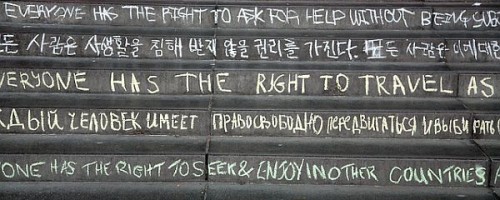 EVERYONE HAS THE RIGHT TO ASK FOR HELP WITHOUT BEING
든 사람은 사생활을 침해 받지 않을 권리를 가진다. 모든 사람은
VERYONE HAS THE RIGHT TO TRAVEL AS
ЖДЫЙ ЧЕЛОВЕК ИМЕЕТ ПРАВО СВОБОДНО ПЕРЕДВИГАТЬСЯ И ВЫБИРАТЬ
ONE HAS THE RIGHT TO SEEK & ENJOY IN OTHER COUNTRIES